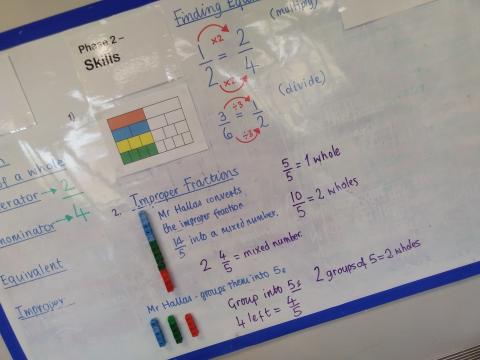 Phase 2 -
Skills
Finding
(multiply)
1/2 = 2/4
×2
×2
(divide)
3/6 = 1/2
÷3
÷3
1)
of a whole
2
4
Equivalent
Improper
2. Improper Fractions
Mr Hallas converts
the improper fraction
14/5 into a mixed number.
2 4/5 = mixed number.
5/5 = 1 whole
10/5 = 2 wholes
Mr Hallas - groups them into 5s
Group into 5s
2 groups of 5 = 2 wholes
4 left = 4/5